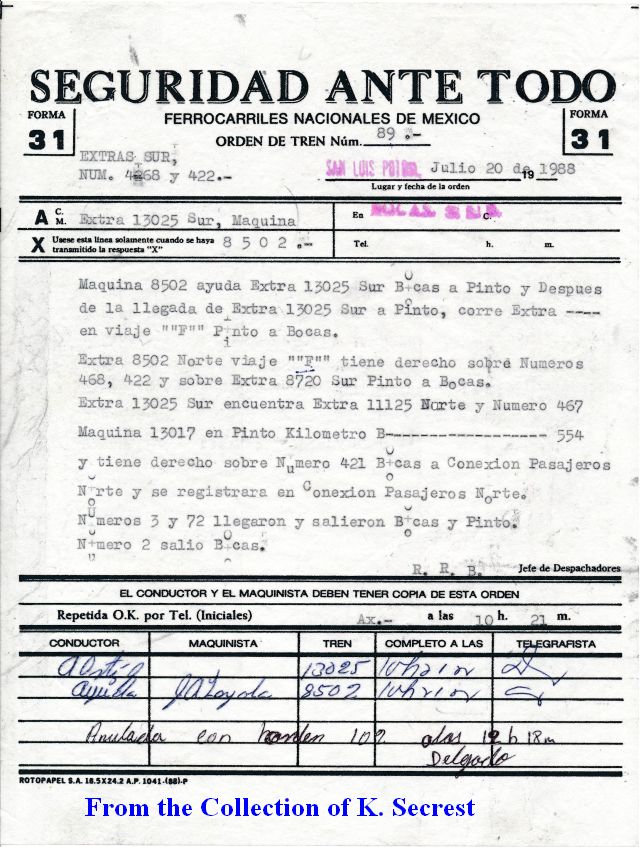 SEGURIDAD ANTE TODO
FORMA
31
FERROCARRILES NACIONALES DE MEXICO
ORDEN DE TREN Núm. 89 .-
FORMA
31
EXTRAS SUR,
NUM. 4268 y 422.-
SAN LUIS POTOSI, Julio 20 de 1988
19
Lugar y fecha de la orden
A C. M. Extra 13025 Sur, Maquina
En BOCAS S.L.P. C.
X Usese esta línea solamente cuando se haya transmitido la respuesta "X" 8 5 0 2 .--
Tel. h. m.
Maquina 8502 ayuda Extra 13025 Sur Bocas a Pinto y Despues
de la llegada de Extra 13025 Sur a Pinto, corre Extra ----
en viaje ""F"" Pinto a Bocas.
Extra 8502 Norte viaje ""F"" tiene derecho sobre Numeros
468, 422 y sobre Extra 8720 Sur Pinto a Bocas.
Extra 13025 Sur encuentra Extra 11125 Norte y Numero 467
Maquina 13017 en Pinto Kilometro B------------------ 554
y tiene derecho sobre Numero 421 Bocas a Conexion Pasajeros
Norte y se registrara en Conexion Pasajeros Norte.
Numeros 3 y 72 llegaron y salieron Bocas y Pinto.
Numero 2 salio Bocas.
R. R. B. Jefe de Despachadores
EL CONDUCTOR Y EL MAQUINISTA DEBEN TENER COPIA DE ESTA ORDEN
Repetida O.K. por Tel. (Iniciales) Ax.- a las 10 h. 21 m.
CONDUCTOR MAQUINISTA TREN COMPLETO A LAS TELEGRAFISTA
13025 10h21m
Ayuda J A Loyola 8502 10h21m
Anulada con horden 102 alas 12 h 18m
Delgado
ROTOPAPEL S.A. 18.5X24.2 A.P. 1041-(88)-P
From the Collection of K. Secrest